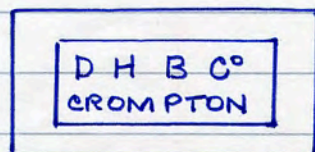 D H B Cº
CROMPTON